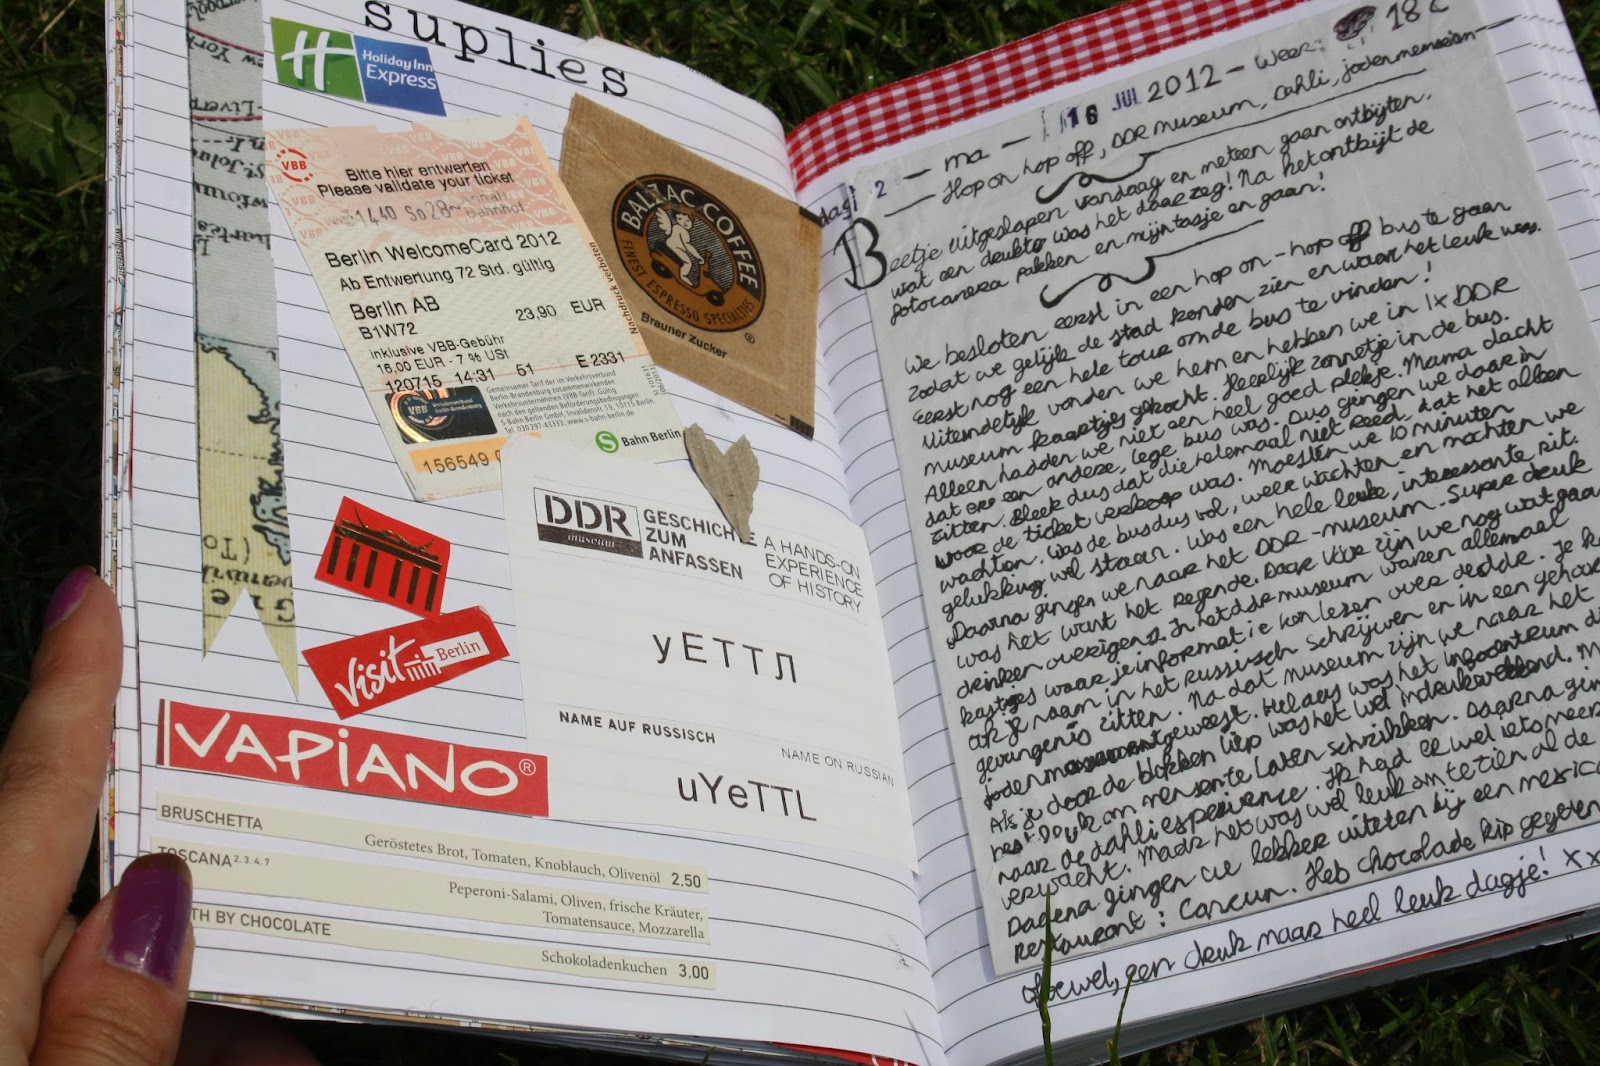 suplies
Holiday Inn
Express
VBB
Bitte hier entwerten
Please validate your ticket
1440 So 28
Bahnhof
Berlin WelcomeCard 2012
Ab Entwertung 72 Std. gültig
Berlin AB
B1W72
23,90 EUR
inklusive VBB-Gebühr
16,00 EUR - 7 % USt
120715 14:31 51 E 2331
Nachdruck verboten
VBB Verkehrsverbund
Berlin-Brandenburg
Gemeinsamer Tarif der im Verkehrsverbund
Berlin-Brandenburg zusammenwirkenden
Verkehrsunternehmen (VBB-Tarif). Gültig
nach den geltenden Beförderungsbedingungen.
S-Bahn Berlin GmbH, Invalidenstr. 19, 10115 Berlin.
Tel. 030 297-43333, www.s-bahn-berlin.de
S Bahn Berlin
156549
BALZAC COFFEE
FINEST ESPRESSO SPECIALTIES
Brauner Zucker
DDR
museum
GESCHICHTE
ZUM
ANFASSEN
A HANDS-ON
EXPERIENCE
OF HISTORY
уЕТТЛ
NAME AUF RUSSISCH
NAME ON RUSSIAN
uYeTTL
visit Berlin
VAPiANO®
BRUSCHETTA
Geröstetes Brot, Tomaten, Knoblauch, Olivenöl 2,50
TOSCANA 2, 3, 4, 7
Peperoni-Salami, Oliven, frische Kräuter,
Tomatensauce, Mozzarella
BY CHOCOLATE
Schokoladenkuchen 3,00
dag 2 - ma - 16 JUL 2012 - weer: 18
Hop on hop off, DDR museum, dahli, joden
Beetje uitgeslapen vandaag en meteen gaan ontbijten,
wat een drukte was het daar zeg! Na het ontbijt de
fotocamera pakken en mijn tasje en gaan!
We besloten eerst in een hop on-hop off bus te gaan
zodat we gelijk de stad konden zien en waar het leuk was.
Eerst nog een hele tour om de bus te vinden!
Uiteindelijk vonden we hem en hebben we in 1x DDR
museum kaartjes gekocht. Heerlijk zonnetje in de bus.
Alleen hadden we niet een heel goed plekje. Mama dacht
dat er een andere, lege bus was. Dus gingen we daar in
zitten. Bleek dus dat die helemaal niet reed, dat het alleen
voor de ticket verkoop was. Moesten we 10 minuten
wachten. Was de bus dus vol, weer wachten en mochten we
gelukkig wel staan. Was een hele leuke, interessante rit.
Daarna gingen we naar het DDR-museum. Super druk
was het want het regende. Daar voor zijn we nog wat gaan
drinken overigens. In het ddr museum waren allemaal
kastjes waar je informatie kon lezen over de ddr. Je k
ook je naam in het russisch schrijven en in een gehoor
gevangenis zitten. Na dat museum zijn we naar het
joden geweest. Helaas was het infocentrum di
Als je door de blokken liep was het wel indrukwekkend. M
best leuk om mensen te laten schrikken. Daarna gin
naar de dahli experience. Ik had er wel iets meer
verwacht. Maar het was wel leuk om te zien al de
Daarna gingen we lekker uiteten bij een mexica
restaurant: Cancun. Heb chocolade kip gegeten
ofwel, een druk maar heel leuk dagje! xx